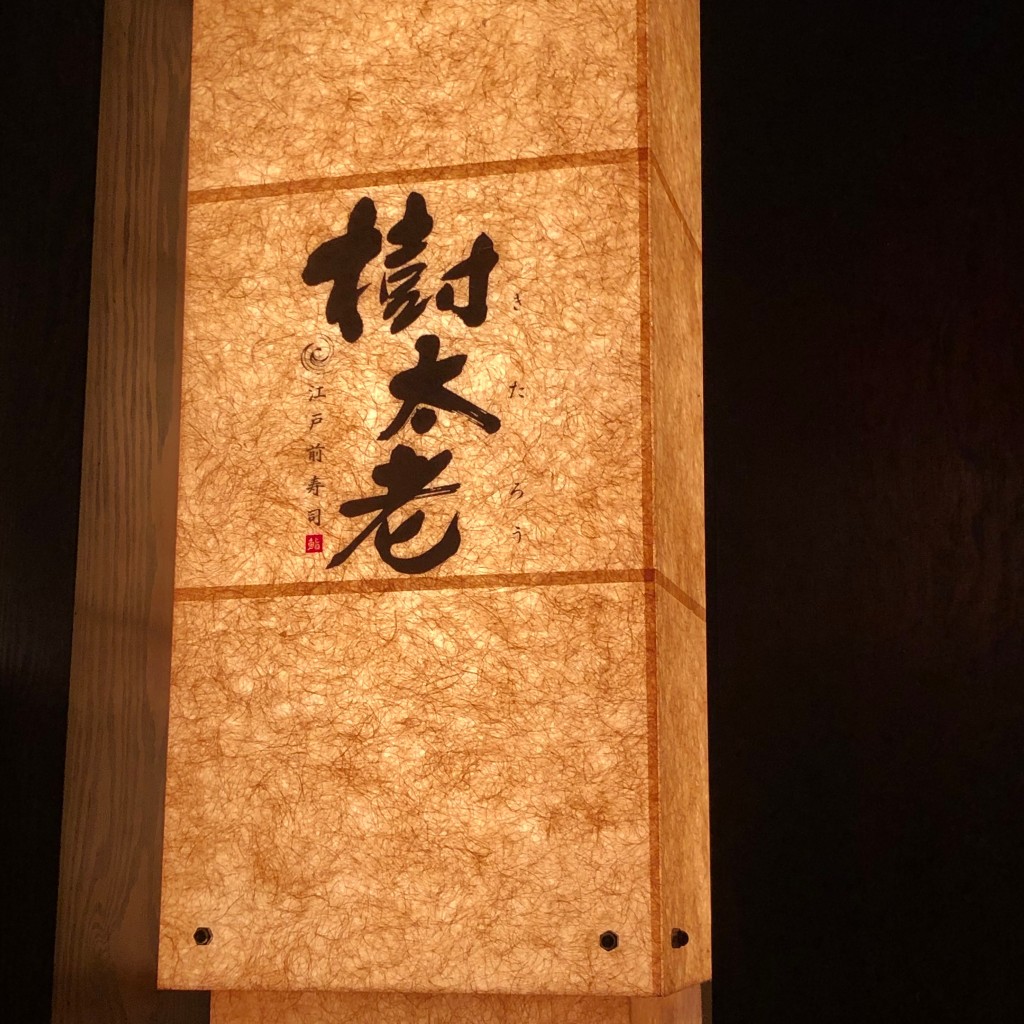 きたろう
樹太老
江戸前寿司
鮨